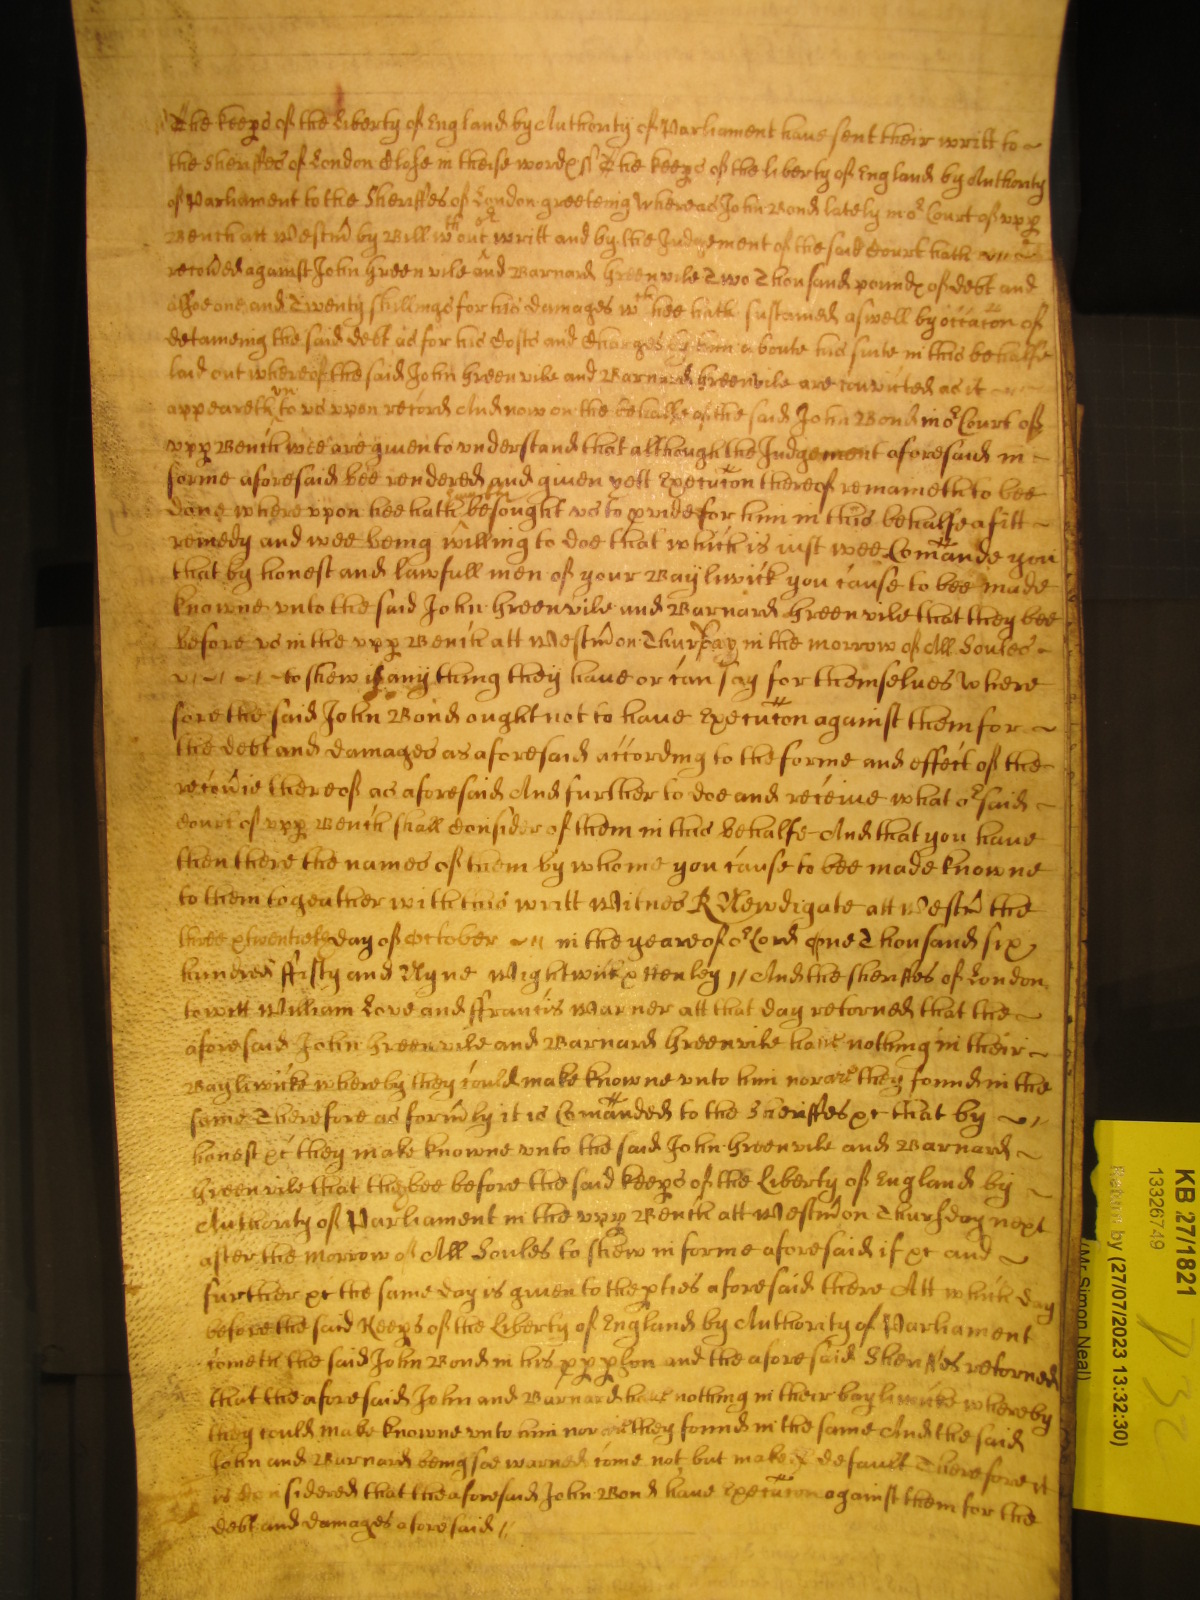 The keeps of the Liberty of England by Authority of Parliament have sent their writt to
the Sheriffes of London Close in theise wordx ss The keeps of the liberty of England by Authority
of Parliament to the Sheriffes of London greeteing Whereas John Bond lately in or Court of upp
Bench att Westm by Bill wthout writt and by the Judgement of the said Court hath
recoved against John Greenvile and Barnard Greenvile Two Thousand poundx of debt and
alsoe one and Twenty shillings for his damages wch hee hath sustained aswell by occacon of
detaineing the said debt as for his Costs and Charges by him aboute his suite in this behalfe
laid out whereof the said John Greenvile and Barnard Greenvile are convicted as it
appeareth to us upon record And now on the behalfe of the said John Bond in or Court of
upp Bench wee are given to understand that although the Judgement aforesaid in
forme aforesaid bee rendered and given yett Execucon thereof remaineth to bee
done where upon hee hath besought us to pvide for him in this behalfe a fitt
remedy and wee being willing to doe that which is iust wee Comande you
that by honest and lawfull men of your Bayliwick you cause to bee made
knowne unto the said John Greenvile and Barnard Greenvile that they bee
before us in the upp Bench att Westm on Thursday in the morrow of All Soules
to shew if any thing they have or can say for themselves where
fore the said John Bond ought not to have Execucon against them for
the debt and damages as aforesaid according to the forme and effect of the
recovie thereof as aforesaid And further to doe and receive what or said
Court of upp Bench shall Consider of them in this behalfe And that you have
then there the names of them by whome you cause to bee made knowne
to them togeather with this writt Witnes R Newdigate att Westm the
three x twentieth day of October in the yeare of or Lord One Thousand six
hundred ffifty and Nyne Wightwick x Henley // And the sheriffes of London
to witt William Love and ffrancis Warner att that day retorned that the
aforesaid John Greenvile and Barnard Greenvile have nothing in their
Bayliwicke whereby they could make knowne unto him nor are they found in the
same Therefore as formly it is Comanded to the Sheriffes xc that by
honest xc they make knowne unto the said John Greenvile and Barnard
Greenvile that they bee before the said keeps of the Liberty of England by
Authority of Parliament in the upp Bench att Westm on Thursday next
after the Morrow of All Soules to shew in forme aforesaid if xc and
further xc the same day is given to the pties aforesaid there Att which day
before the said Keeps of the Liberty of England by Authority of Parliament
cometh the said John Bond in his pp pson and the aforesaid Sheriffes retorned
that the aforesaid John and Barnard have nothing in their bayliwicke whereby
they could make knowne unto him nor are they found in the same And the said
John and Barnard being soe warned come not but make default Therefore it
is Considered that the aforesaid John Bond have Execucon against them for the
debt and damages aforesaid //
KB 27/1821
13326749
by (27/07/2023 13:32:30)
(Mr Simon Neal)